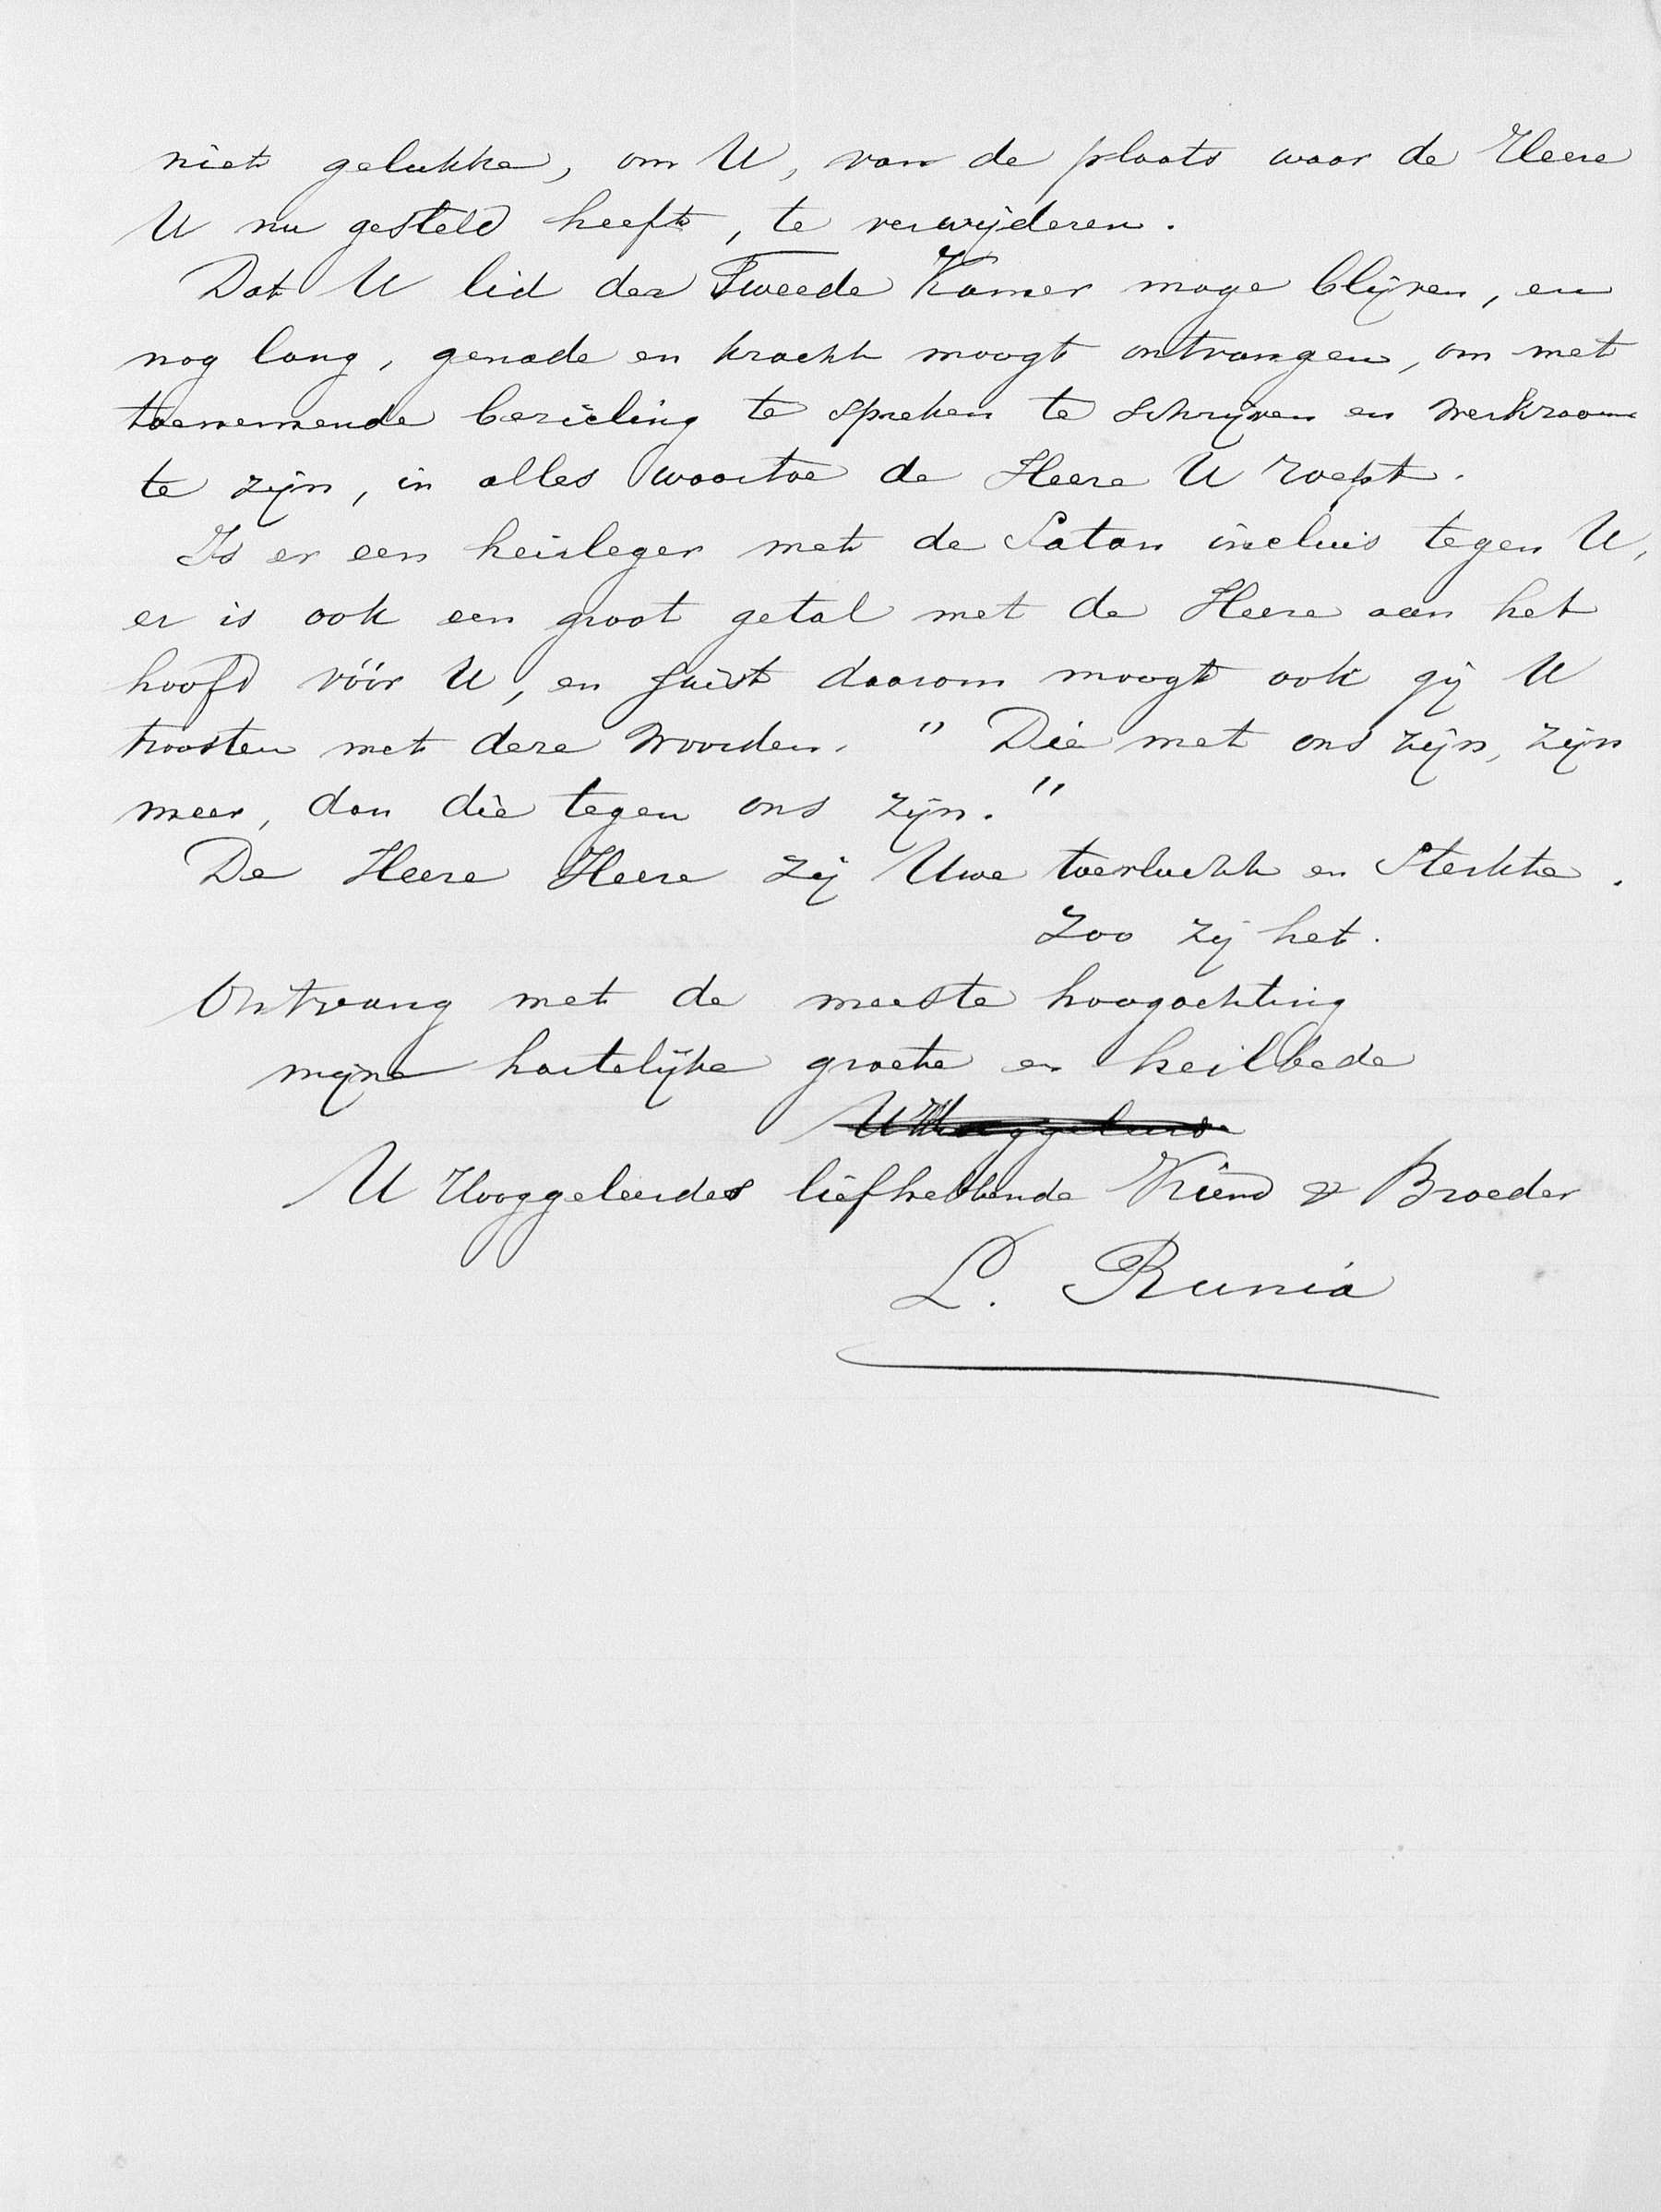 niet gelukke, om U, van de plaats waar de Heere
U nu gesteld heeft, te verwijderen.
Dat U lid der Tweede Kamer moge blijven, en
nog lang, genade en kracht moogt ontvangen, om met
toenemende bezieling te spreken te schrijven en werkzaam
te zijn, in alles waartoe de Heere U roept.
Is er een heirleger met de Satan incluis tegen U,
er is ook een groot getal met de Heere aan het
hoofd vóór U, en juist daarom moogt ook gij U
troosten met deze woorden. "Die met ons zijn, zijn
meer, dan die tegen ons zijn."
De Heere Heere zij Uwe toevlucht en Sterkte.
Zoo zij het.
Ontvang met de meeste hoogachting
mijne hartelijke groete en heilbede
U Hooggeleerdes liefhebbende Vriend & Broeder
L. Runia